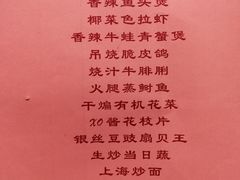 香辣鱼头煲
椰菜色拉虾
香辣牛蛙青蟹煲
吊烧脆皮鸽
烧汁牛腓脷
火腿蒸鲥鱼
干煸有机花菜
XO酱花枝片
银丝豆豉扇贝王
生炒当日蔬
上海炒面